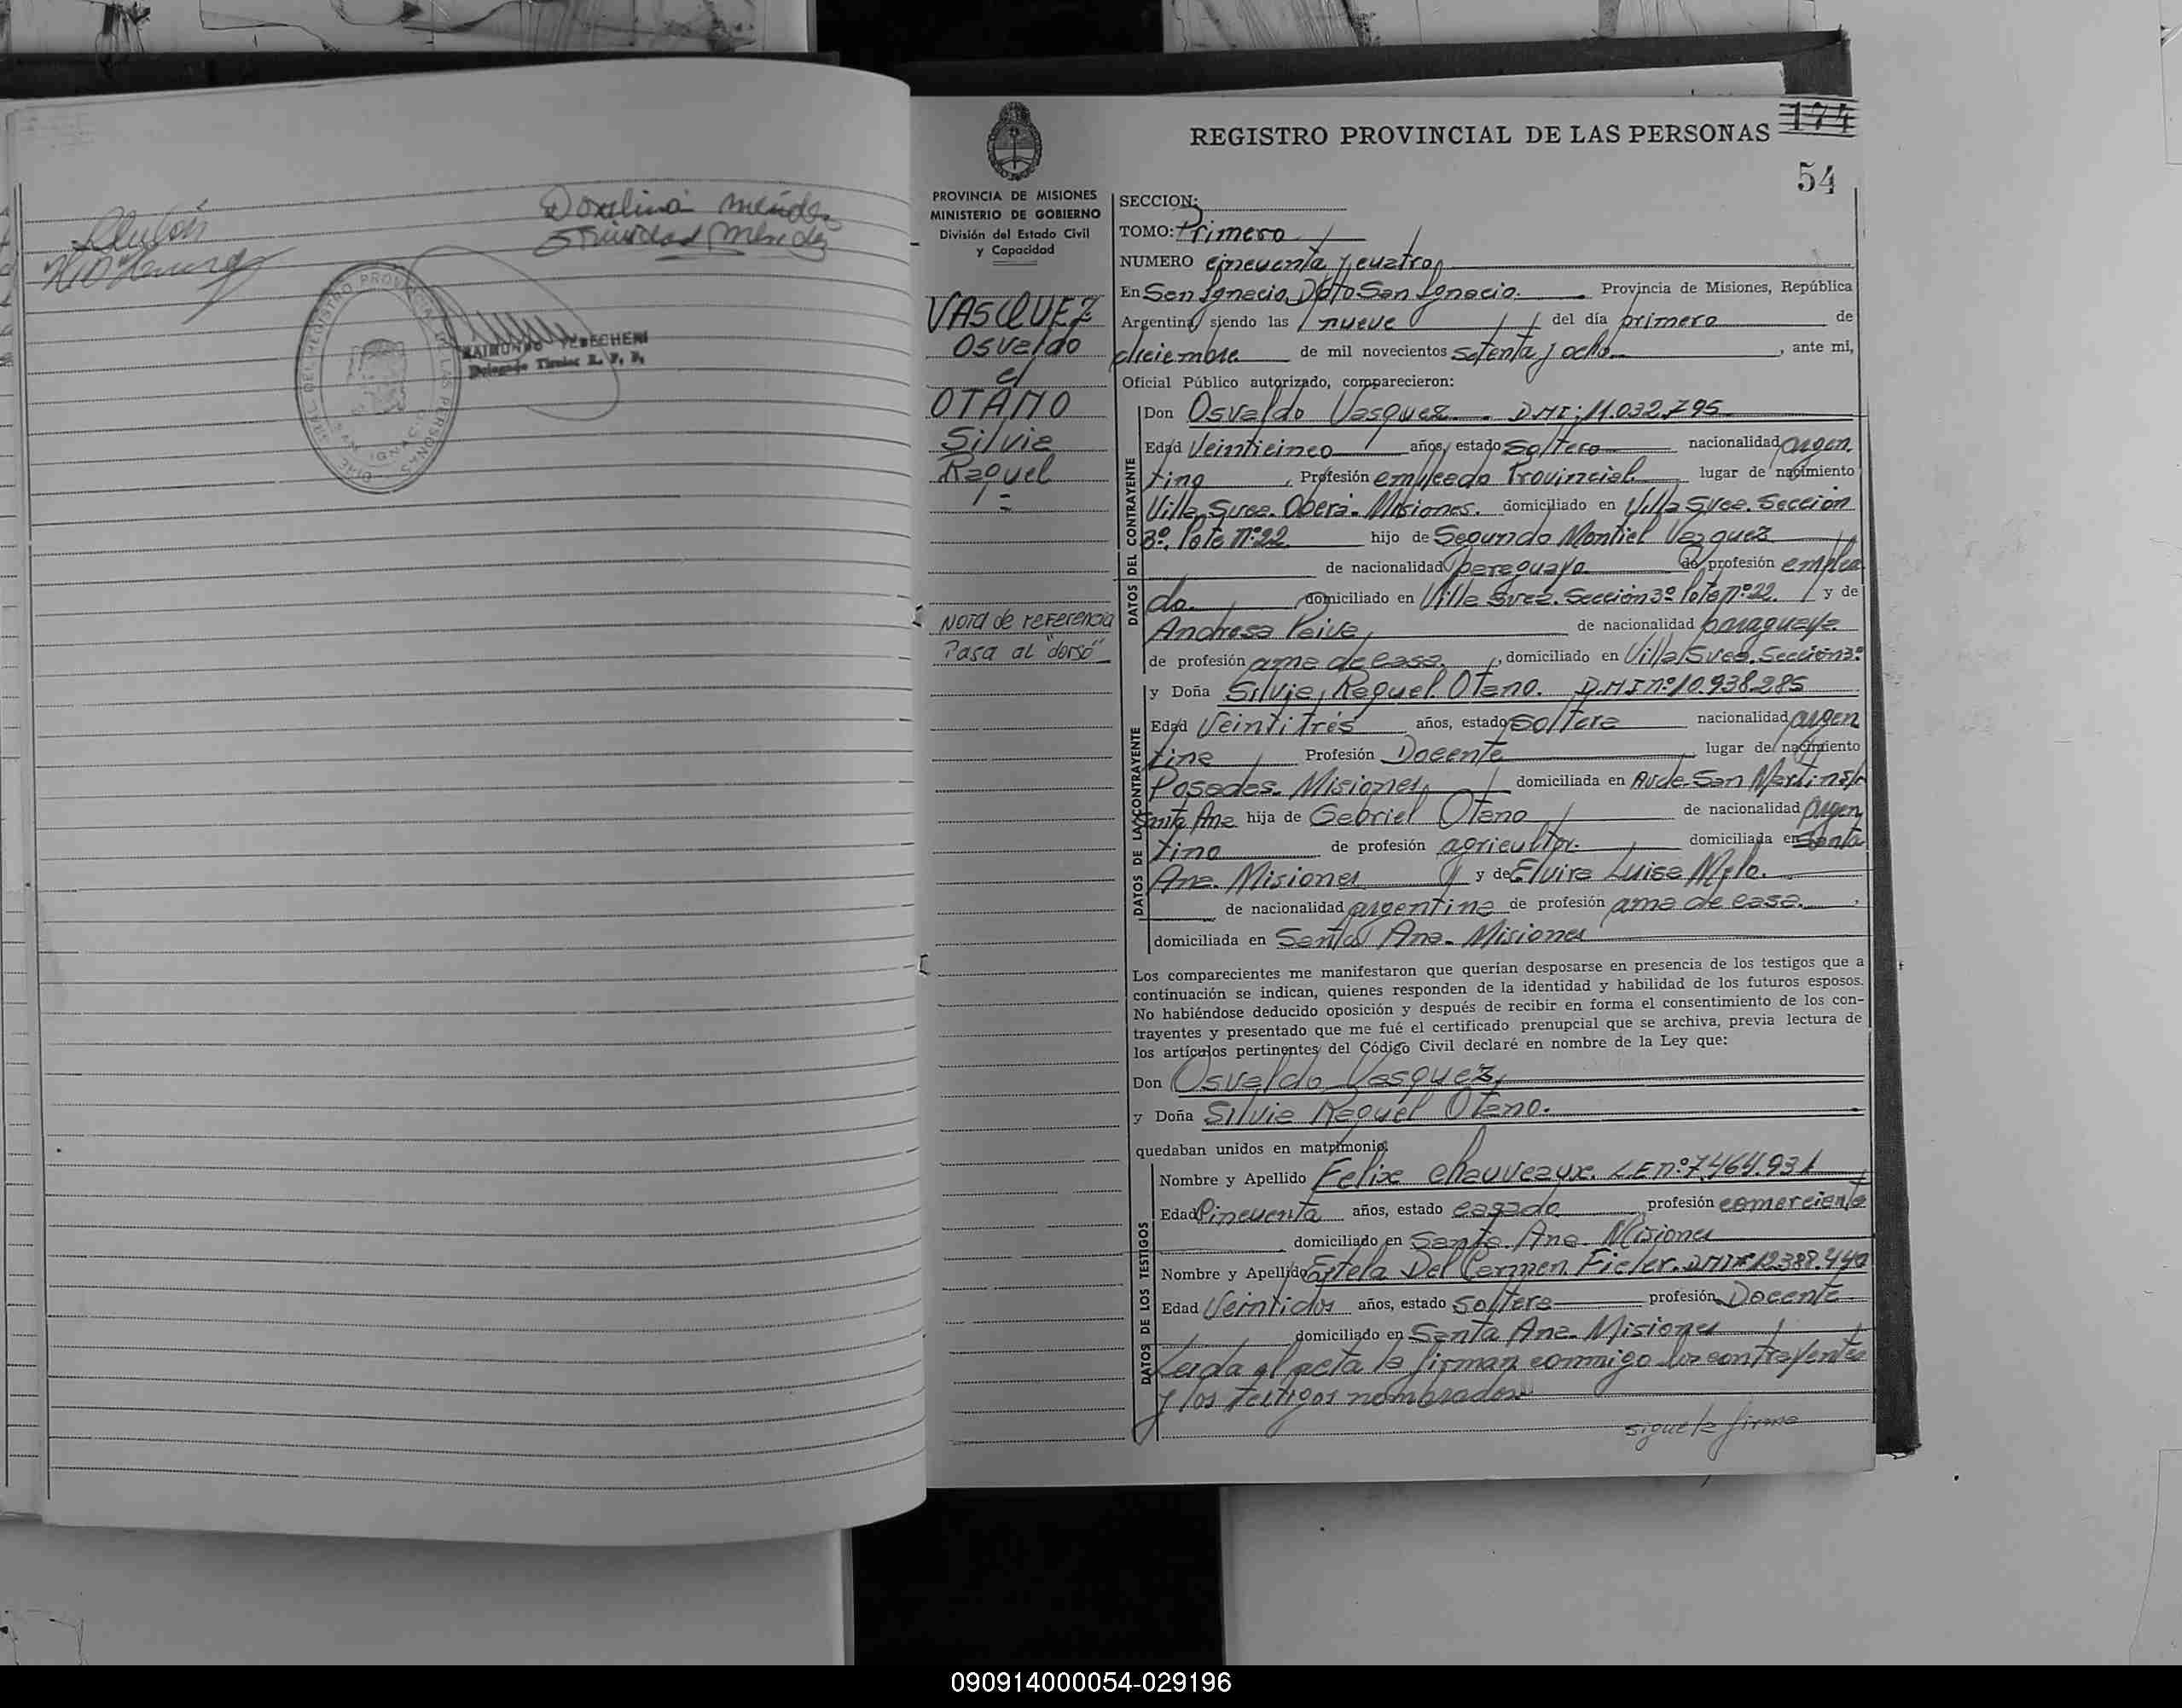 Doralina Méndez
Trinidad Méndez
RAIMUNDO
Delegado Titular R. P. P.
174
REGISTRO PROVINCIAL DE LAS PERSONAS
54
PROVINCIA DE MISIONES
MINISTERIO DE GOBIERNO
División del Estado Civil
y Capacidad
VASQUEZ
Osvaldo
c/
OTAÑO
Silvia
Raquel
Nota de referencia
Pasa al "dorso"
SECCION:
TOMO: Primero
NUMERO cincuenta y cuatro
En San Ignacio, Dpto San Ignacio. Provincia de Misiones, República
Argentina, siendo las nueve del día primero de
diciembre de mil novecientos setenta y ocho , ante mi,
Oficial Público autorizado, comparecieron:
DATOS DEL CONTRAYENTE
Don Osvaldo Vasquez. D.M.I: 11.032.795
Edad Veinticinco años, estado soltero nacionalidad argen
tino , Profesión empleado Provincial lugar de nacimiento
Villa Svea. Oberá. Misiones. domiciliado en Villa Svea. Sección
3º. lote Nº 22 hijo de Segundo Montiel Vazquez
de nacionalidad paraguaya de profesión emplea
do. domiciliado en Villa Svea. Sección 3º lote nº 22. y de
Andresa Paiva de nacionalidad paraguaya
de profesión ama de casa. , domiciliado en Villa Svea. Sección 3º
DATOS DE LA CONTRAYENTE
y Doña Silvia Raquel Otano. D.M.I nº 10.938.285
Edad Veintitrés años, estado soltera nacionalidad argen
tina Profesión Docente lugar de nacimiento
Posadas. Misiones domiciliada en Avda. San Martin s/n
Santa Ana hija de Gabriel Otano de nacionalidad argen
tino de profesión agricultor. domiciliada en Santa
Ana. Misiones y de Elvira Luisa Melo.
de nacionalidad argentina de profesión ama de casa.
domiciliada en Santa Ana. Misiones
Los comparecientes me manifestaron que querían desposarse en presencia de los testigos que a
continuación se indican, quienes responden de la identidad y habilidad de los futuros esposos.
No habiéndose deducido oposición y después de recibir en forma el consentimiento de los con-
trayentes y presentado que me fué el certificado prenupcial que se archiva, previa lectura de
los artículos pertinentes del Código Civil declaré en nombre de la Ley que:
Don Osvaldo Vasquez
y Doña Silvia Raquel Otano.
quedaban unidos en matrimonio.
DATOS DE LOS TESTIGOS
Nombre y Apellido Felix Chauveaux. L.E nº 7.464.931
Edad Cincuenta años, estado casado profesión comerciante
domiciliado en Santa Ana. Misiones
Nombre y Apellido Estela Del Carmen Fieler. DMI nº 12.388.440
Edad Veintidos años, estado soltera profesión Docente
domiciliado en Santa Ana. Misiones
Leida el acta la firman conmigo los contrayentes
y los testigos nombrados
sigue la firma
090914000054-029196